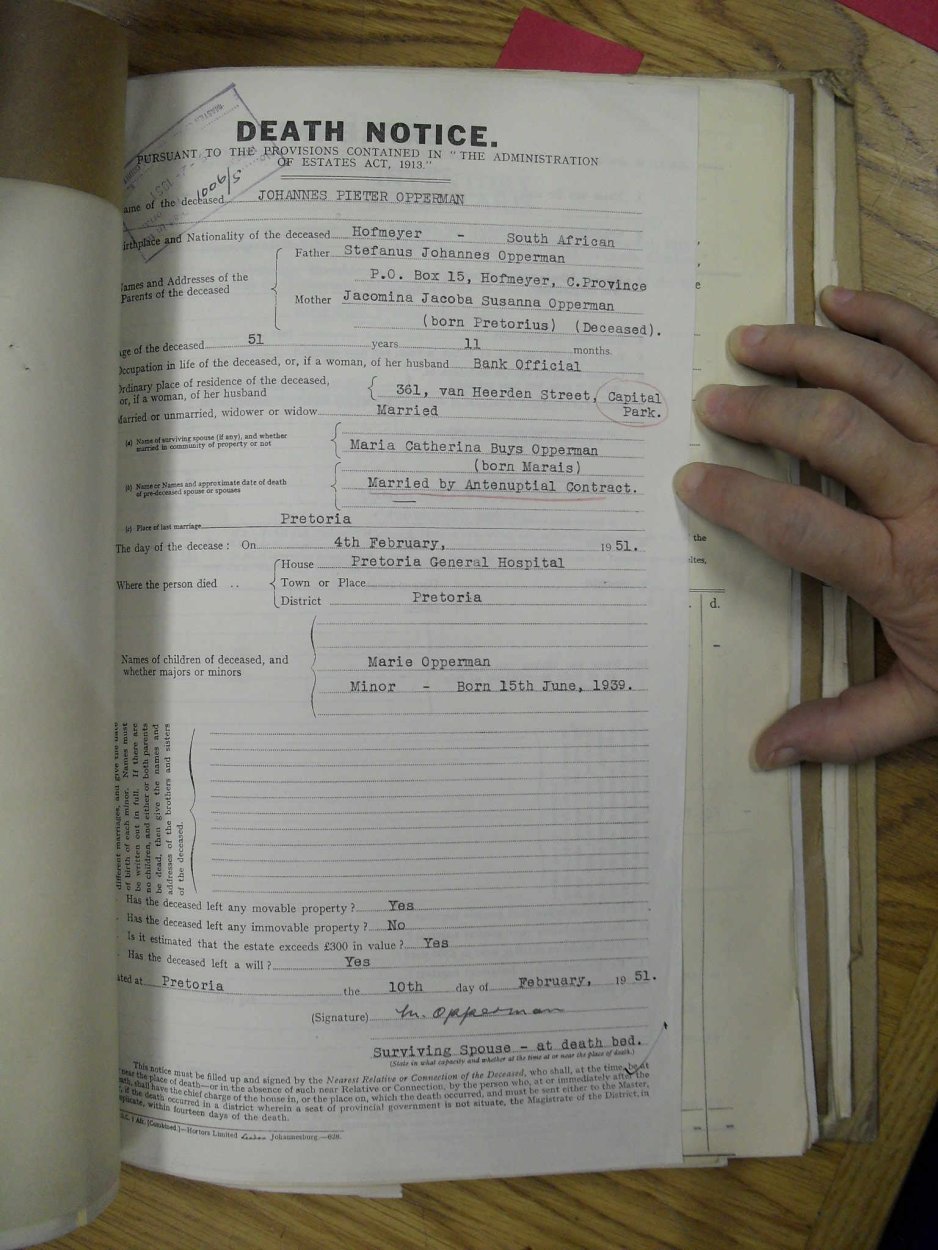 DEATH NOTICE.
PURSUANT TO THE PROVISIONS CONTAINED IN "THE ADMINISTRATION
OF ESTATES ACT, 1913."
5/9001
ame of the deceased JOHANNES PIETER OPPERMAN
irthplace and Nationality of the deceased Hofmeyer - South African
Names and Addresses of the
Parents of the deceased
Father Stefanus Johannes Opperman
P.O. Box 15, Hofmeyer, C.Province
Mother Jacomina Jacoba Susanna Opperman
(born Pretorius) (Deceased).
ge of the deceased 51 years 11 months.
Occupation in life of the deceased, or, if a woman, of her husband Bank Official
Ordinary place of residence of the deceased,
or, if a woman, of her husband
361, van Heerden Street, Capital
Park.
Married or unmarried, widower or widow Married
(a) Name of surviving spouse (if any), and whether
married in community of property or not
Maria Catherina Buys Opperman
(born Marais)
(b) Name or Names and approximate date of death
of pre-deceased spouse or spouses
Married by Antenuptial Contract.
(c) Place of last marriage Pretoria
The day of the decease: On 4th February, 1951.
Where the person died ..
House Pretoria General Hospital
Town or Place
District Pretoria
Names of children of deceased, and
whether majors or minors
Marie Opperman
Minor - Born 15th June, 1939.
different marriages, and give the date
of birth of each minor. Names must
be written out in full. If there are
no children, and either or both parents
be dead, then give the names and
addresses of the brothers and sisters
of the deceased.
Has the deceased left any movable property? Yes
Has the deceased left any immovable property? No
Is it estimated that the estate exceeds £300 in value? Yes
Has the deceased left a will? Yes
ated at Pretoria the 10th day of February, 1951.
(Signature) M. Opperman
Surviving Spouse - at death bed.
(State in what capacity and whether at the time at or near the place of death.)
This notice must be filled up and signed by the Nearest Relative or Connection of the Deceased, who shall, at the time, be at
near the place of death—or in the absence of such near Relative or Connection, by the person who, at or immediately after the
ath, shall have the chief charge of the house in, or the place on, which the death occurred, and must be sent either to the Master,
, if the death occurred in a district wherein a seat of provincial government is not situate, the Magistrate of the District, in
plicate, within fourteen days of the death.
(Combined.)—Hortors Limited Johannesburg.—628.
the
d.